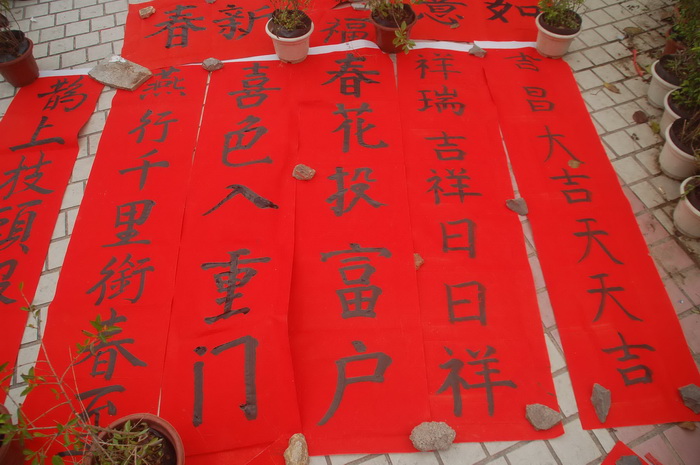 如意福新春
吉昌大吉天天吉
祥瑞吉祥日日祥
春花投富户
喜色入重门
燕行千里衔春至
鹊上枝头报